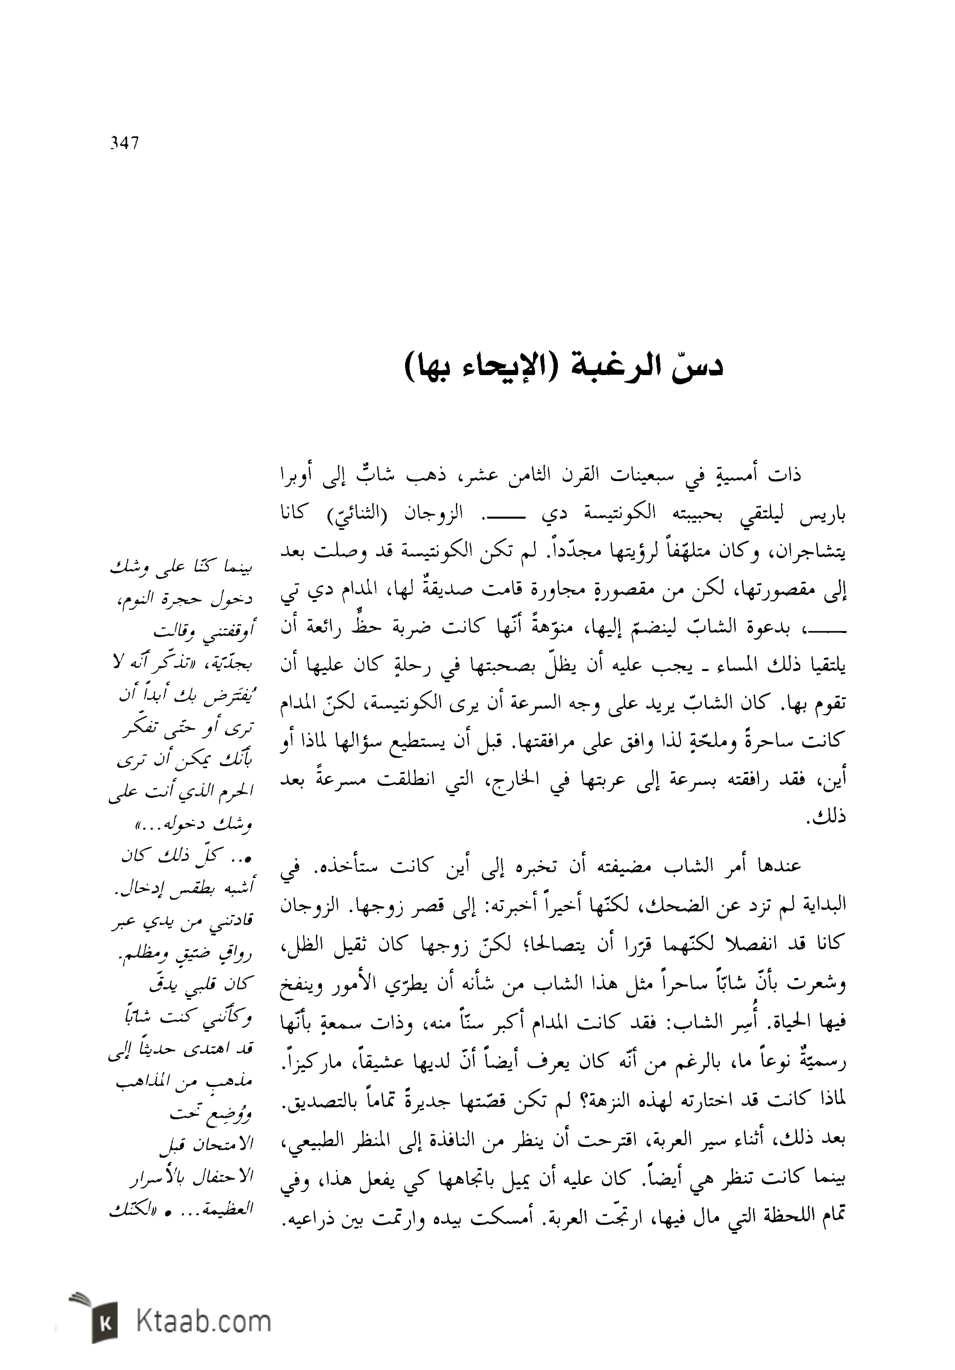 347
دسّ الرغبة (الإيحاء بها)
ذات أمسيةٍ في سبعينات القرن الثامن عشر، ذهب شابٌّ إلى أوبرا
باريس ليلتقي بحبيبته الكونتيسة دي ـــــ. الزوجان (الثنائيّ) كانا
يتشاجران، وكان متلهّفاً لرؤيتها مجدّداً. لم تكن الكونتيسة قد وصلت بعد
إلى مقصورتها، لكن من مقصورةٍ مجاورة قامت صديقةٌ لها، المدام دي تي
ـــــ، بدعوة الشابّ لينضمّ إليها، منوّهةً أنّها كانت ضربة حظٍّ رائعة أن
يلتقيا ذلك المساء ـ يجب عليه أن يظلّ بصحبتها في رحلةٍ كان عليها أن
تقوم بها. كان الشابّ يريد على وجه السرعة أن يرى الكونتيسة، لكنّ المدام
كانت ساحرةً وملحّةٍ لذا وافق على مرافقتها. قبل أن يستطيع سؤالها لماذا أو
أين، فقد رافقته بسرعة إلى عربتها في الخارج، التي انطلقت مسرعةً بعد
ذلك.
عندها أمر الشاب مضيفته أن تخبره إلى أين كانت ستأخذه. في
البداية لم تزد عن الضحك، لكنّها أخيراً أخبرته: إلى قصر زوجها. الزوجان
كانا قد انفصلا لكنّهما قرّرا أن يتصالحا؛ لكنّ زوجها كان ثقيل الظل،
وشعرت بأنّ شابّاً ساحراً مثل هذا الشاب من شأنه أن يطرّي الأمور وينفخ
فيها الحياة. أُسِر الشاب: فقد كانت المدام أكبر سنّاً منه، وذات سمعةٍ بأنّها
رسميّةٌ نوعاً ما، بالرغم من أنّه كان يعرف أيضاً أنّ لديها عشيقاً، ماركيزاً.
لماذا كانت قد اختارته لهذه النزهة؟ لم تكن قصّتها جديرةً تماماً بالتصديق.
بعد ذلك، أثناء سير العربة، اقترحت أن ينظر من النافذة إلى المنظر الطبيعي،
بينما كانت تنظر هي أيضاً. كان عليه أن يميل باتجاهها كي يفعل هذا، وفي
تمام اللحظة التي مال فيها، ارتجّت العربة. أمسكت بيده وارتمت بين ذراعيه.
بينما كنّا على وشك
دخول حجرة النوم،
أوقفتني وقالت
بجدّيّة، «تذكّر أنّه لا
يُفتَرض بك أبداً أن
ترى أو حتّى تفكّر
بأنّك يمكن أن ترى
الحرم الذي أنت على
وشك دخوله...»
•.. كلّ ذلك كان
أشبه بطقس إدخال.
قادتني من يدي عبر
رواقٍ ضيّقٍ ومظلم.
كان قلبي يدقّ
وكأنّني كنت شابّاً
قد اهتدى حديثاً إلى
مذهبٍ من المذاهب
ووُضِع تحت
الامتحان قبل
الاحتفال بالأسرار
العظيمة... • «لكنّك
Ktaab.com